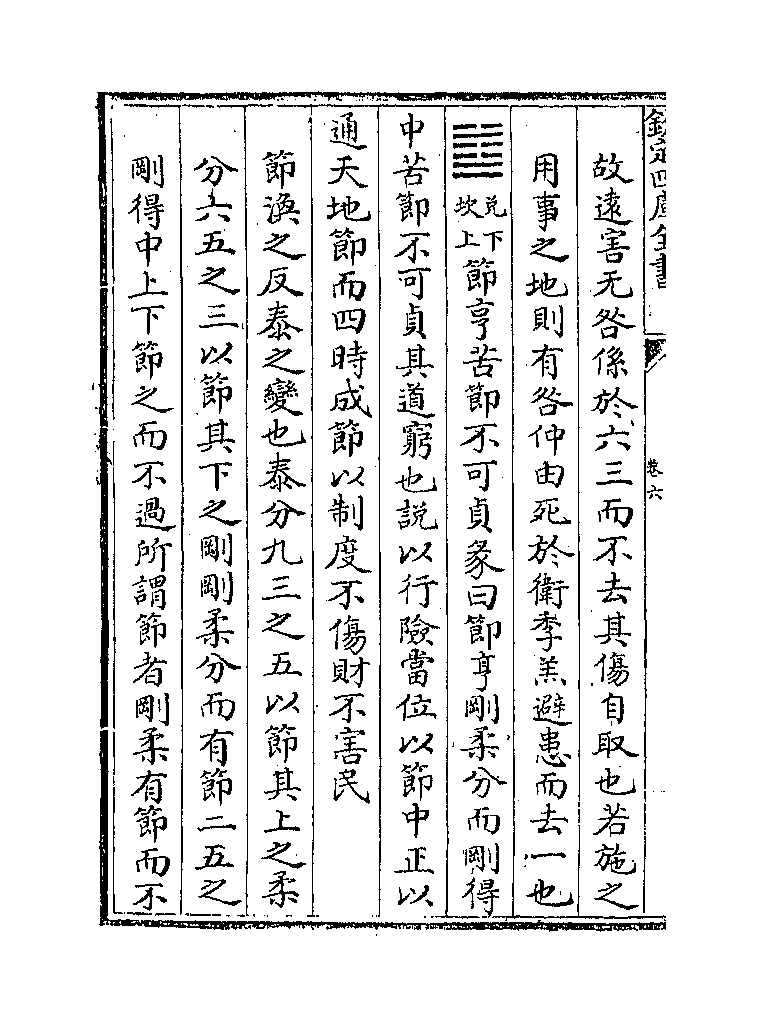 欽定四庫全書
卷六
故遠害无咎係於六三而不去其傷自取也若施之
用事之地則有咎仲由死於衛季羔避患而去一也
䷻兌下坎上節亨苦節不可貞彖曰節亨剛柔分而剛得
中苦節不可貞其道窮也説以行險當位以節中正以
通天地節而四時成節以制度不傷財不害民
節渙之反泰之變也泰分九三之五以節其上之柔
分六五之三以節其下之剛剛柔分而有節二五之
剛得中上下節之而不過所謂節者剛柔有節而不